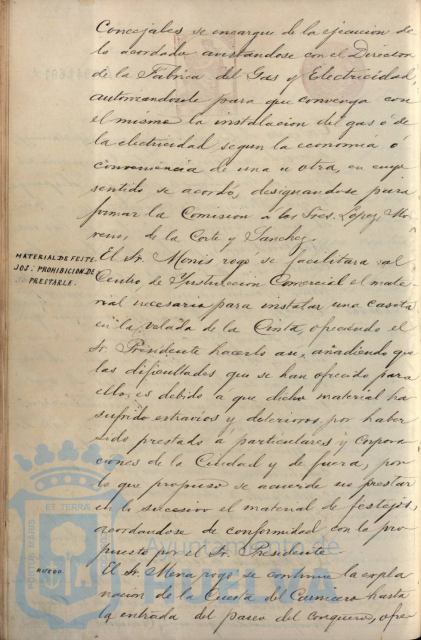 Concejales se encargue de la ejecucion de
lo acordado avistandose con el Director
de la Fabrica del Gas y Electricidad,
autorizandosele para que convenga con
el mismo la instalacion del gas ó de
la electricidad segun la economia o
conveniencia de una u otra, en cuyo
sentido se acordó, designandose para
formar la Comision a los Sres. Lopez, Mo-
reno, de la Corte y Sanchez.
MATERIAL DE FESTE-
JOS. PROHIBICION DE
PRESTARLE.
El Sr. Monis rogo se facilitara al
Centro de Instruccion Comercial el mate-
rial necesario para instalar una caseta
en la velada de la Cinta, ofreciendo el
Sr. Presidente hacerlo asi, añadiendo que
las dificultades que se han ofrecido para
ello, es debido a que dicho material ha
sufrido extravios y deterioros por haber
sido prestado a particulares y corpora-
ciones de la Ciudad y de fuera, por
lo que propuso se acuerde no prestar
en lo sucesivo el material de festejos,
acordandose de conformidad con lo pro-
puesto por el Sr. Presidente.
RUEGO.
El Sr. Mora rogo se continue la expla-
nacion de la Cuesta del Carnicero hasta
la entrada del paseo del conquero, ofre-
PORTUS MARIS
ET TERRAE
Ayuntamiento de
HUELVA